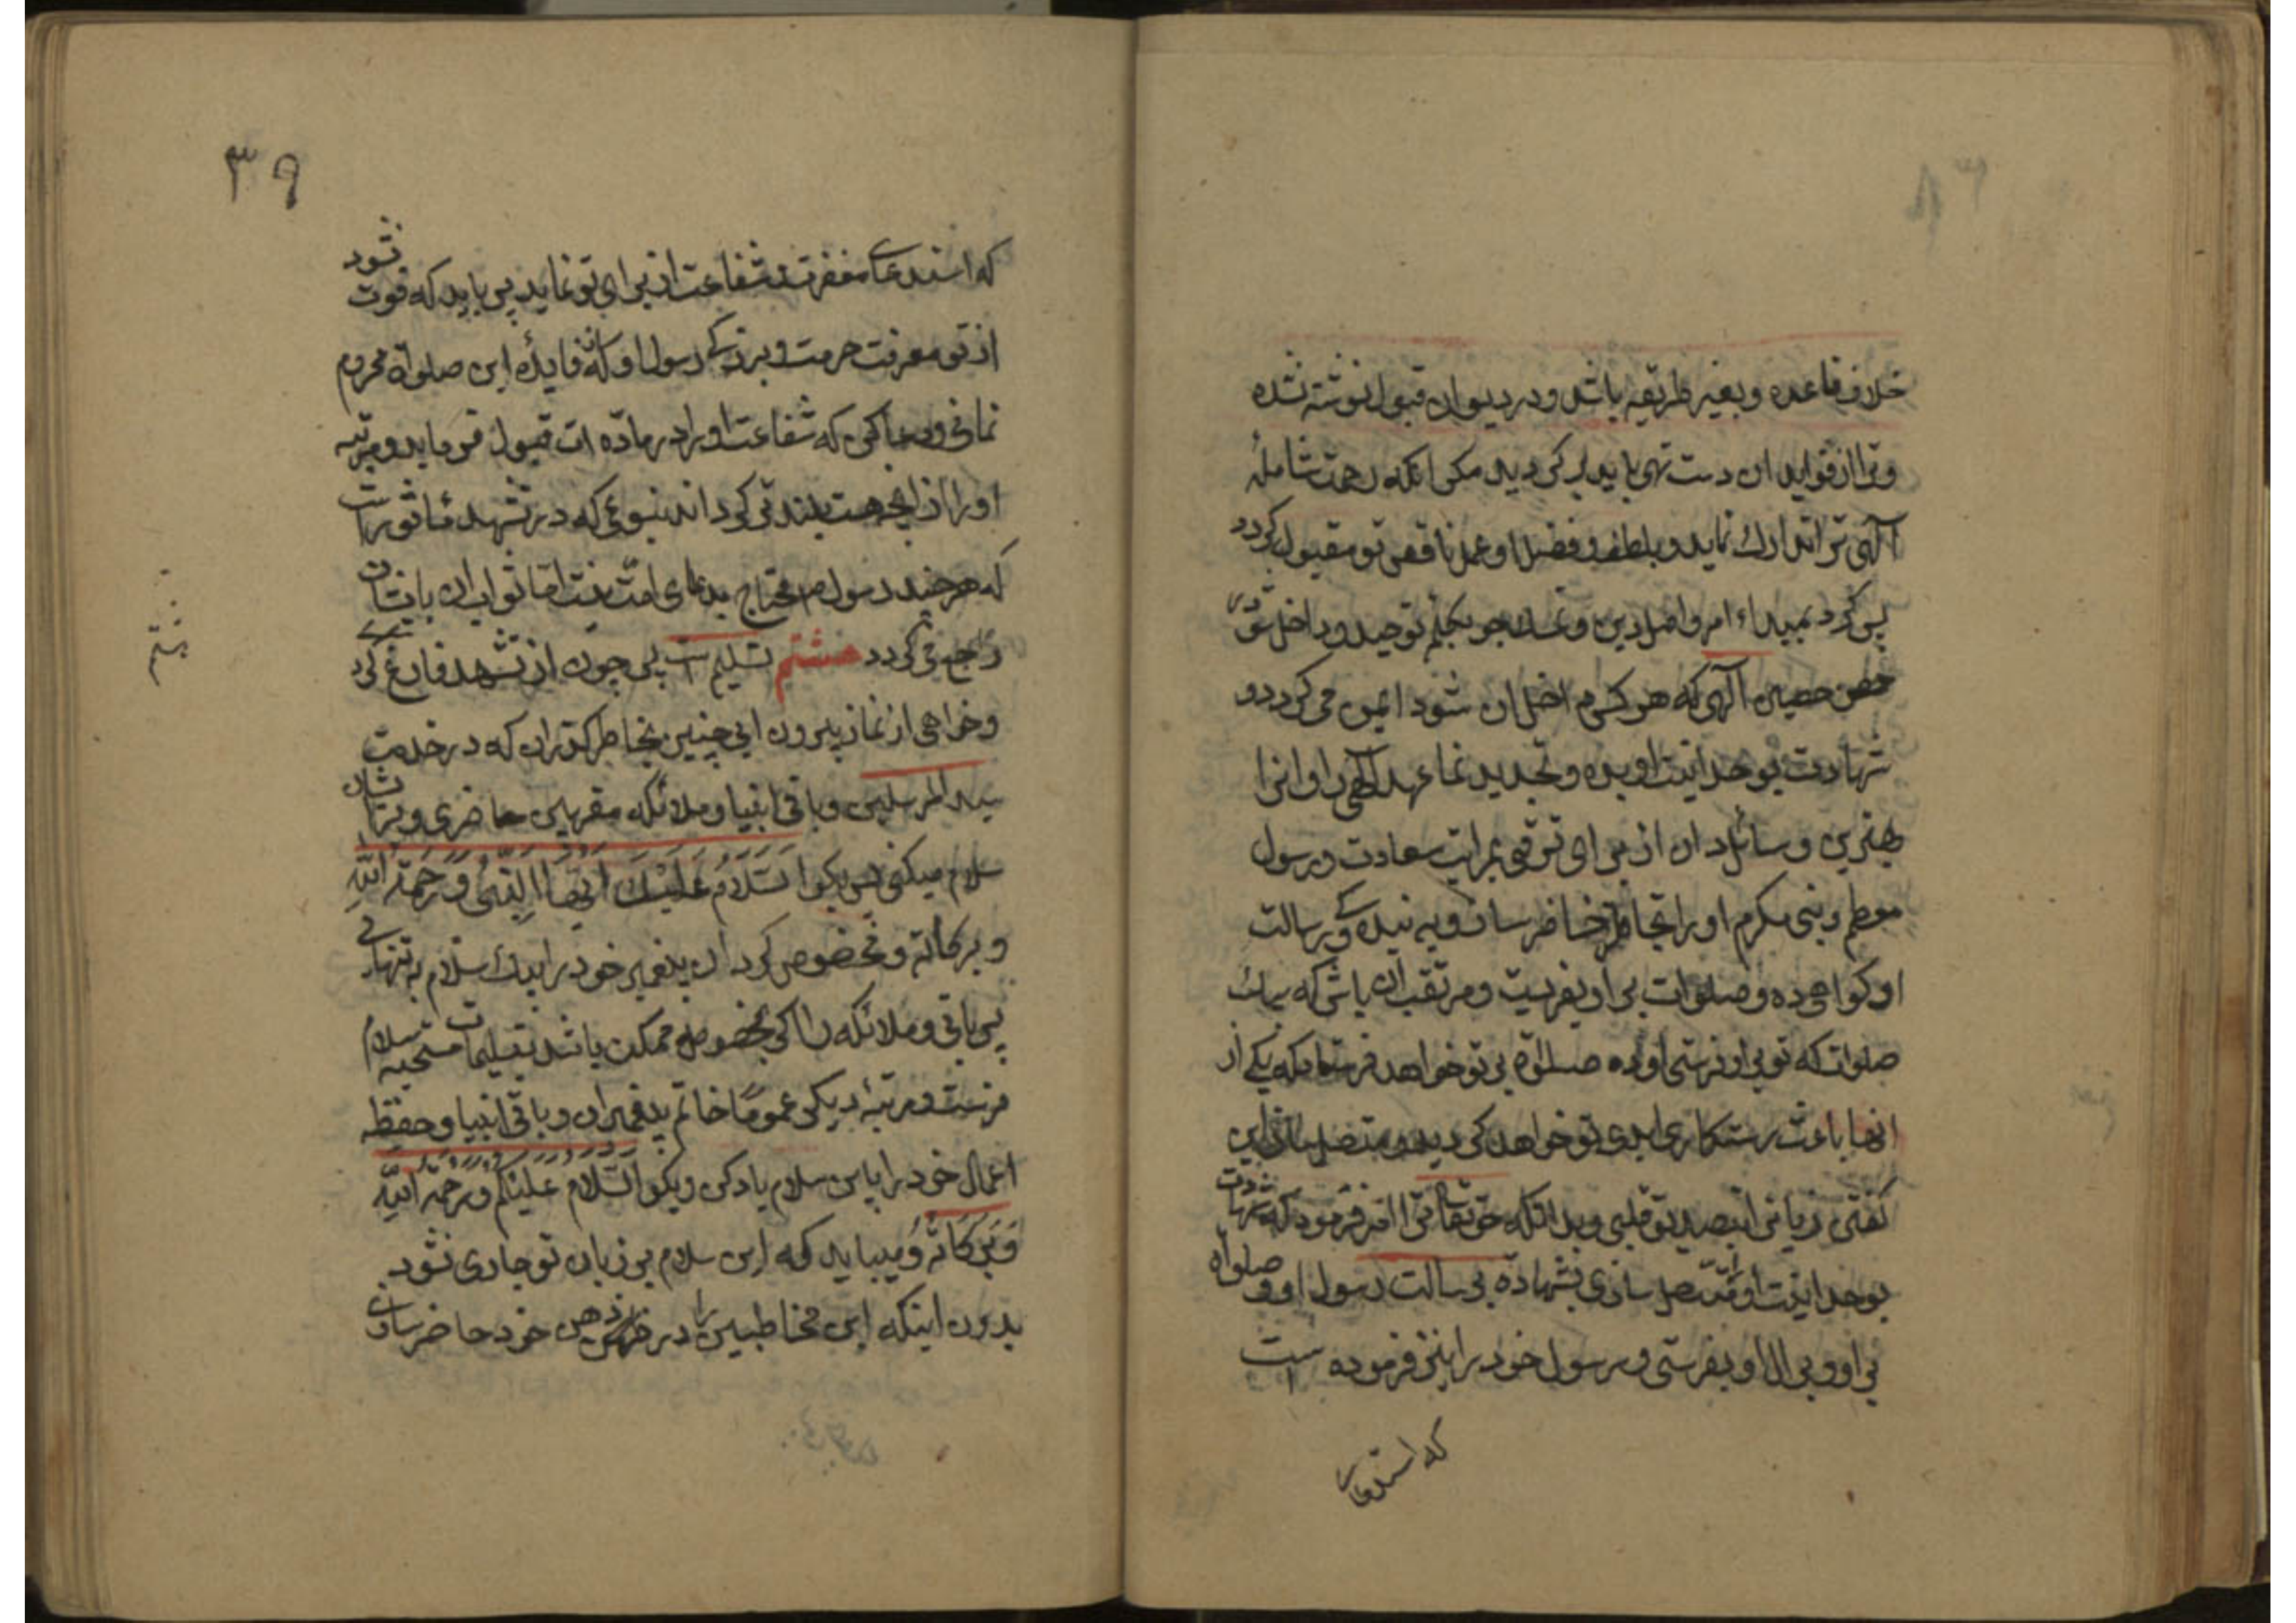 خلاف قاعده و بغیر طریقه باشد و در دیوان قبول نوشته نشده
و ترا از فواید ان دست تهی باید بر کردید مکر انکه رحمت شامله
آلهی ترا تدارك نماید و بلطف و فضل او عمل ناقص تو مقبول کردد
پس کرد بمبداء امر و اصل دین و بکلم توحید و داخل شو در
حصن حصین آلهی که هر که داخل ان شود ایمن می کردد و
شهادت بوحدانیت او بده و تجدید نما عهد آلهی را و انرا
بهترین وسائل دان از برای ترقی بمراتب سعادت و رسول
معظم و نبی مکرم او را بخاطر حاضر ساز و به بندکی و رسالت
او کواهی ده و صلوات بر او بفرست و مرتقب ان باش که بهر یك
صلوات که تو بر او فرستی او ده صلواة بر تو خواهد فرستاد که یکی از
انها باعث رستکاری ابدی تو خواهد کردید و متصل ساز این
کفتن زبانی بتصدیق قلبی و بدانکه حق تعالی ترا امر فرمود که شهادت
بوحدانیت او را متصل سازی بشهادة برسالت رسول او و صلواة
بر او و بر ال او بفرستی و رسول خود را نیز فرموده است
که استدعای
٣٩
که استدعای مغفرت و شفاعت از برای تو نماید پس باید که فوت نشود
از تو معرفت حرمت و بزرکی رسول او که از فایدهٔ این صلواة محروم
نمانی و دعا کن که شفاعت او را در ماده ات قبول فرماید و مرتبه
او را از انچه هست بلند تر کرداند بنوعی که در تشهد ماثور است
که هر چند رسول ص محتاج بدعای امت نیست اما ثواب ان بایشان
راجع می کردد هشتم تسلیم است پس چون از تشهد فارغ کردی
هشتم
و خواهی از نماز بیرون ایی چنین بخاطر کذران که در خدمت
سید المرسلین و باقی انبیا و ملائکه مقربین حاضری و بر ایشان
سلام میکنی پس بکو السَّلَامُ عَلَیْكَ اَیُّهَا النَّبِیُّ وَرَحْمَةُ اللّٰهِ
و برکاته و مخصوص کردان پیغمبر خود را بیك سلام به تنهایی
پس باقی و ملائکه را اکر بخصوص ممکن باشد بتسلیمات مستحبه سلام
فرست و مرتبهٔ دیکر عموما خاتم پیغمبران و باقی انبیا و حفظه
اعمال خود را باین سلام یاد کن و بکو السَّلَامُ عَلَیْکُمْ وَرَحْمَةُ اللّٰهِ
وَبَرَکَاتُهُ و میباید که این سلام بر زبان تو جاری نشود
بدون اینکه این مخاطبین را در ذهن خود حاضر سازی